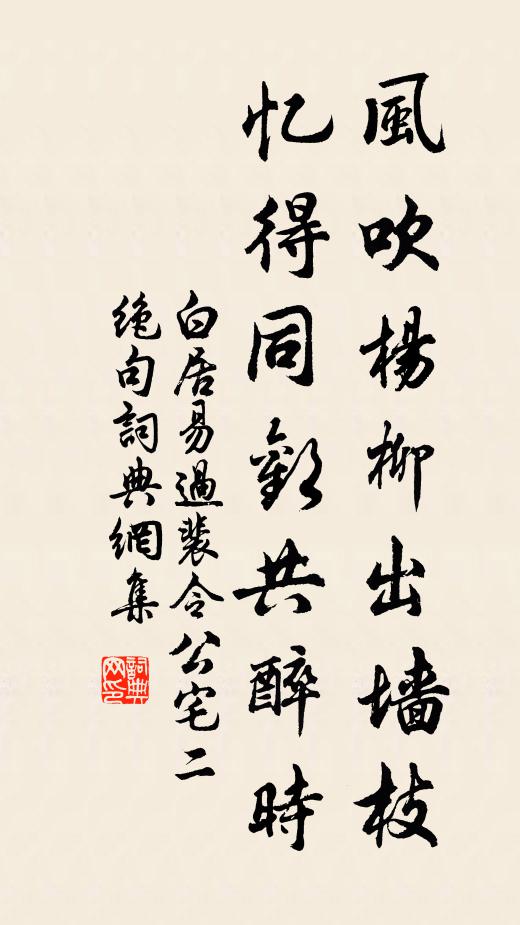 風吹楊柳出墻枝
忆得同歡共醉時
白居易過裴令公宅二
绝句詞典網集
詞典
网印